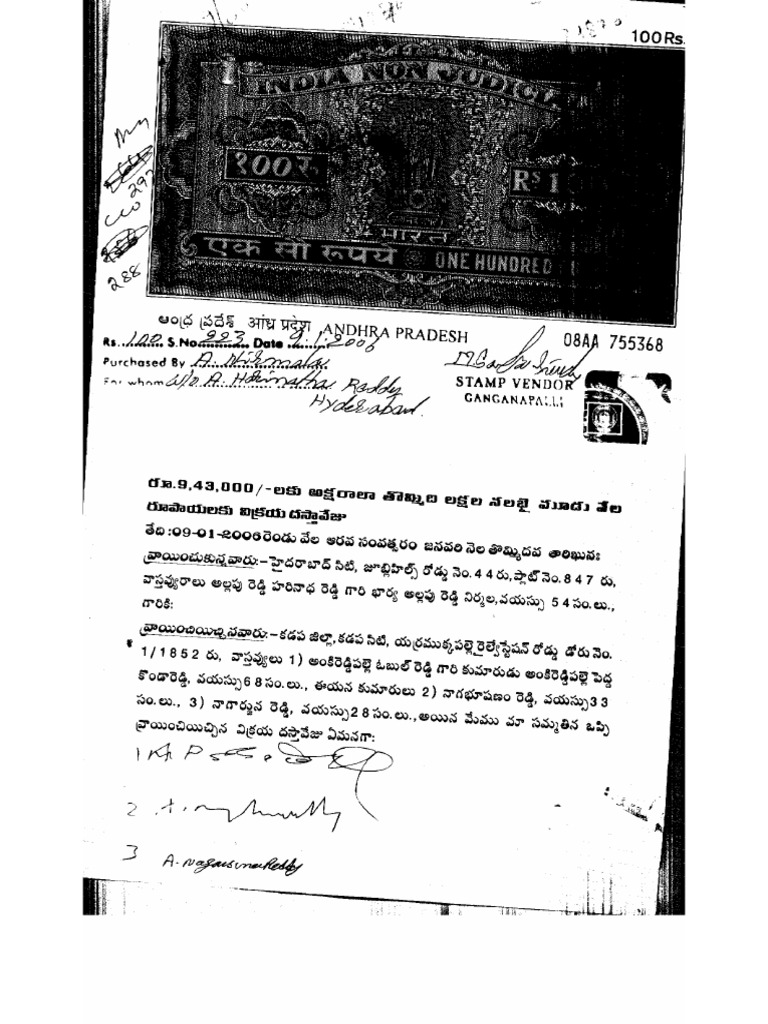 100Rs.
INDIA NON JUDICIAL
१००रु
Rs 1
भारत
एक सौ रूपये ONE HUNDRED
ఆంధ్ర ప్రదేశ్ आंध्र प्रदेश ANDHRA PRADESH
08AA 755368
Rs. 100 S.No. 223 Date 9.1.2006
Purchased By A. Nirmala
For whom W/o A. Harinatha Reddy
Hyderabad.
STAMP VENDOR
GANGANAPALLI
297
288
రూ.9,43,000/-లకు అక్షరాలా తొమ్మిది లక్షల నలభై మూడు వేల
రూపాయలకు విక్రయ దస్తావేజు
తేది:09-01-2006రెండు వేల ఆరవ సంవత్సరం జనవరి నెల తొమ్మిదవ తారిఖునః
వ్రాయించుకున్నవారు:-హైదరాబాద్ సిటి, జూబ్లిహిల్స్ రోడ్డు నెం.44రు,ప్లాట్ నెం.847 రు,
వాస్తవ్యురాలు అల్లపు రెడ్డి హరినాధ రెడ్డి గారి భార్య అల్లపు రెడ్డి నిర్మల,వయస్సు 54సం.లు.,
గారికి:
వ్రాయించియిచ్చినవారు:-కడప జిల్లా,కడప సిటి, యర్రముక్కపల్లె రైల్వేస్టేషన్ రోడ్డు డోరు నెం.
1/1852 రు, వాస్తవ్యులు 1) అంకిరెడ్డిపల్లె ఓబుల్ రెడ్డి గారి కుమారుడు అంకిరెడ్డిపల్లె పెద్ద
కొండారెడ్డి, వయస్సు68సం.లు., ఈయన కుమారులు 2) నాగభూషణం రెడ్డి, వయస్సు33
సం.లు., 3) నాగార్జున రెడ్డి, వయస్సు28సం.లు.,అయిన మేము మా సమ్మతిన ఒప్పి
వ్రాయించియిచ్చిన విక్రయ దస్తావేజు ఏమనగా:
1
2
3 A. Nagarjuna Reddy